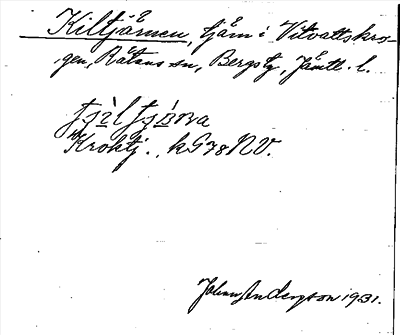 Kiltjärnen, tjärn i Vitvattskro-
gen, Rätans sn, Bergs tg, Jämtl. l.
Kroktj., kG78NV.
Johannes Andersson 1931.